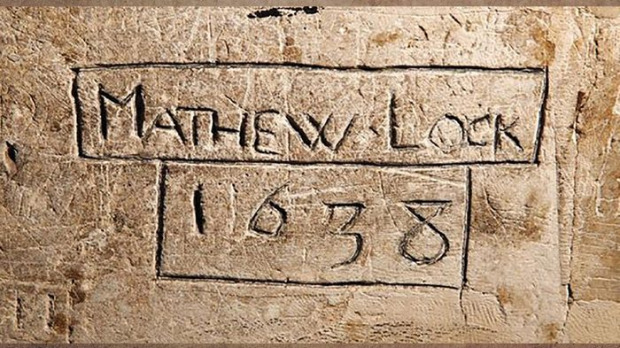 MATHEW · LOCK
1638